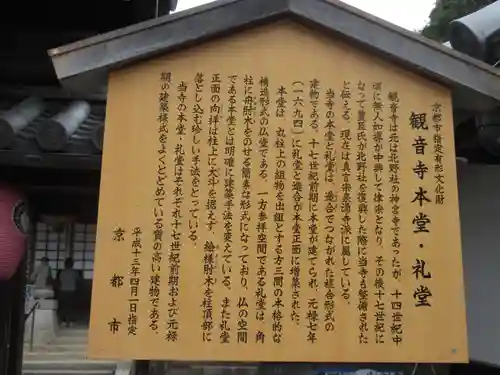 京都市指定有形文化財
観音寺本堂・礼堂
観音寺は元は北野社の神宮寺であったが、十四世紀中
頃に無人如導が中興して律宗となり、その後十七世紀に
なって豊臣氏が北野社を復興した際に当寺も整備された
と伝える。現在は真言宗泉涌寺派に属している。
当寺の本堂と礼堂は、造合でつながれた複合形式の
建物である。十七世紀前期に本堂が建てられ、元禄七年
（一六九四）に礼堂と造合が本堂正面に増築された。
本堂は、丸柱上の組物を出組とする方三間の本格的な
構造形式の仏堂である。一方参拝空間である礼堂は、角
柱に舟肘木をのせる簡素な形式になっており、仏の空間
である本堂とは明確に建築手法を変えている。また礼堂
正面の向拝は柱上に大斗を据えず、絵様肘木を柱頂部に
落とし込む珍しい手法をとっている。
当寺の本堂、礼堂はそれぞれ十七世紀前期および元禄
期の建築様式をよくとどめている質の高い建物である。
平成十三年四月一日指定
京都市